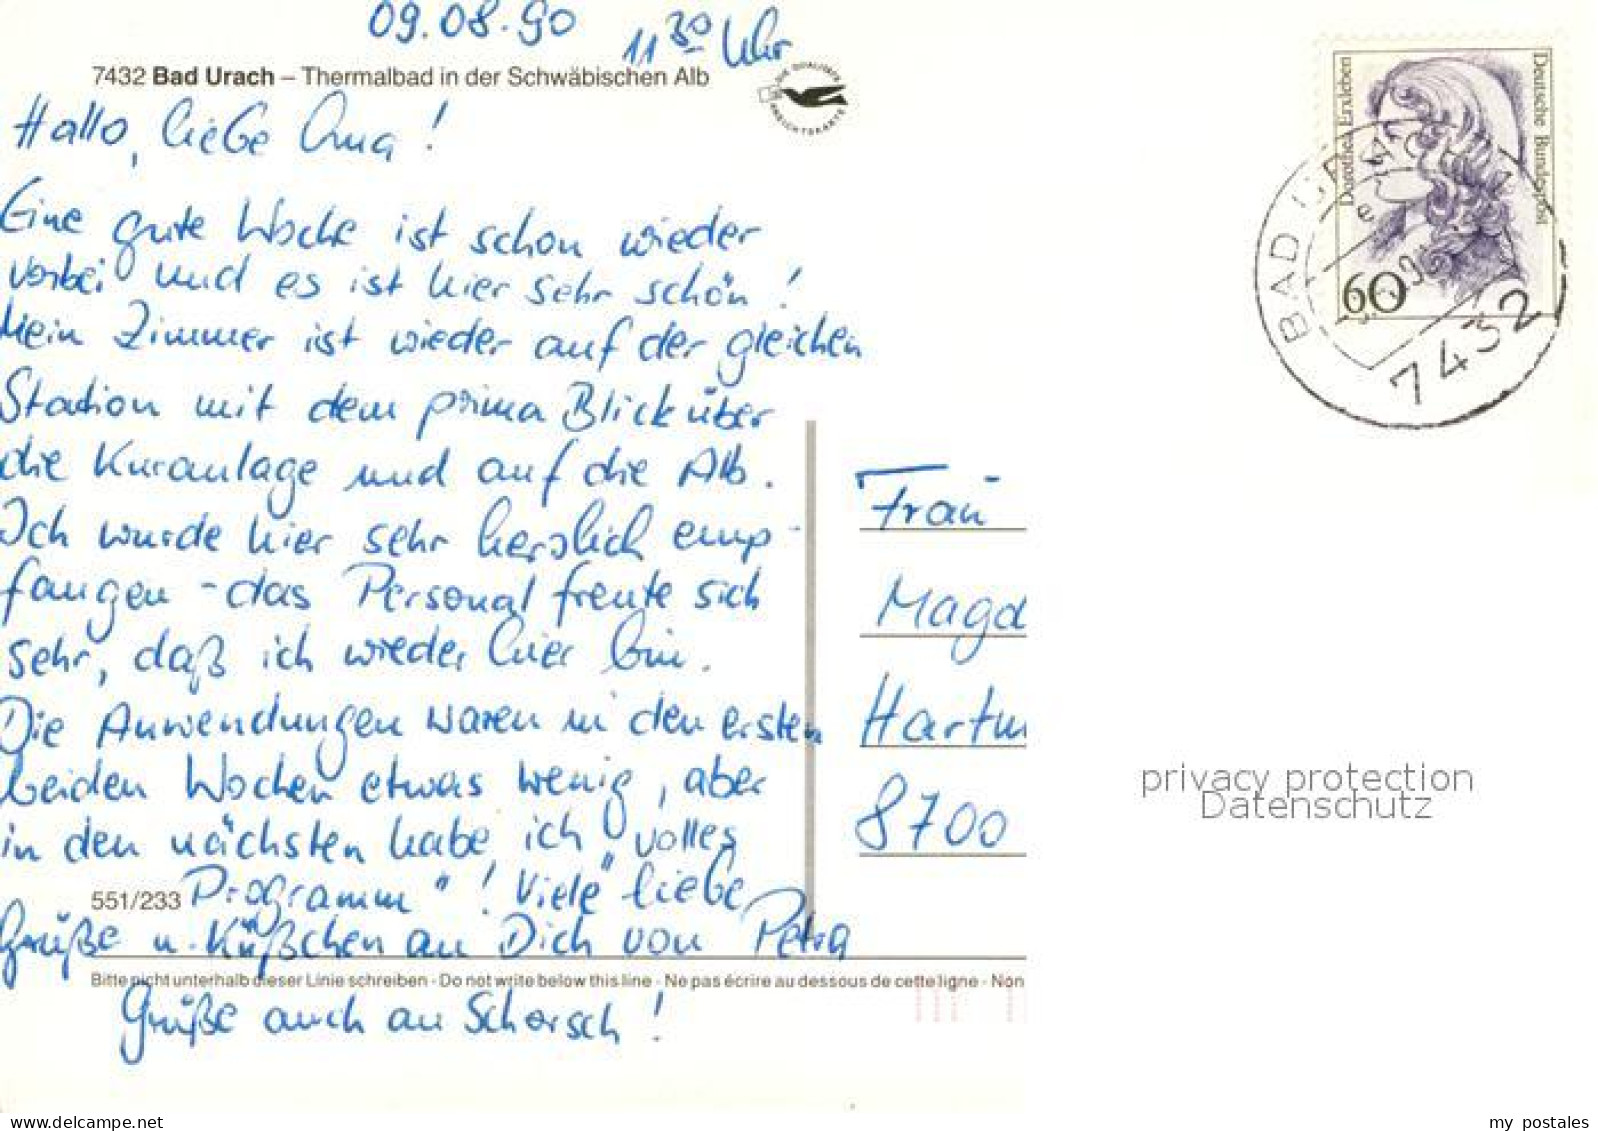 09.08.90
11 30 Uhr
7432 Bad Urach – Thermalbad in der Schwäbischen Alb
DIE QUALITÄTS ANSICHTSKARTE
Hallo, liebe Oma!
Eine gute Woche ist schon wieder
vorbei und es ist hier sehr schön!
Mein Zimmer ist wieder auf der gleichen
Station mit dem prima Blick über
die Kuranlage und auf die Alb.
Ich wurde hier sehr herzlich emp-
fangen - das Personal freute sich
sehr, daß ich wieder hier bin.
Die Anwendungen waren in den ersten
beiden Wochen etwas wenig, aber
in den nächsten habe ich "volles
551/233 Programm"! Viele liebe
Grüße u. Küßchen an Dich von Petra
Bitte nicht unterhalb dieser Linie schreiben - Do not write below this line - Ne pas écrire au dessous de cette ligne - Non
Grüße auch an Schorsch!
Dorothea Erxleben
Deutsche Bundespost
60
BAD URACH
e
90
7432
Frau
Magd
Hartm
8700
privacy protection
Datenschutz
www.delcampe.net
my_postales